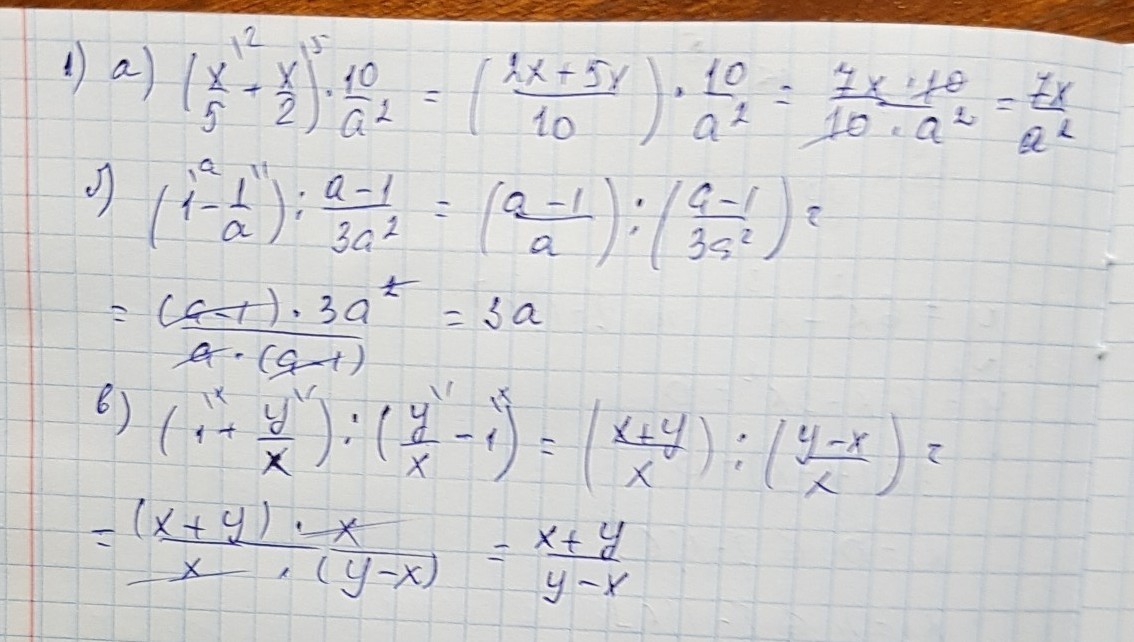 1) а) (x/5 \2 + x/2 \5) · 10/a² = ((2x+5x)/10) · 10/a² = (7x·10)/(10·a²) = 7x/a²
б) (1 \a − 1/a \1) : (a−1)/(3a²) = ((a−1)/a) : ((a−1)/(3a²)) =
= ((a−1)·3a²)/(a·(a−1)) = 3a
в) (1 \x + y/x \1) : (y/x \1 − 1 \x) = ((x+y)/x) : ((y−x)/x) =
= ((x+y)·x)/(x·(y−x)) = (x+y)/(y−x)